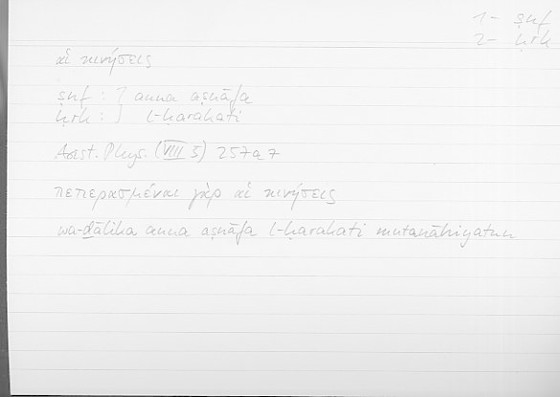 1- ṣnf
2- ḥrk
αἱ κινήσεις
ṣnf : ] anna aṣnāfa
ḥrk : ] l-ḥarakati
Arist. Phys. (VIII 5) 257a7
πεπερασμέναι γὰρ αἱ κινήσεις
wa-ḏālika anna aṣnāfa l-ḥarakati mutanāhiyatun